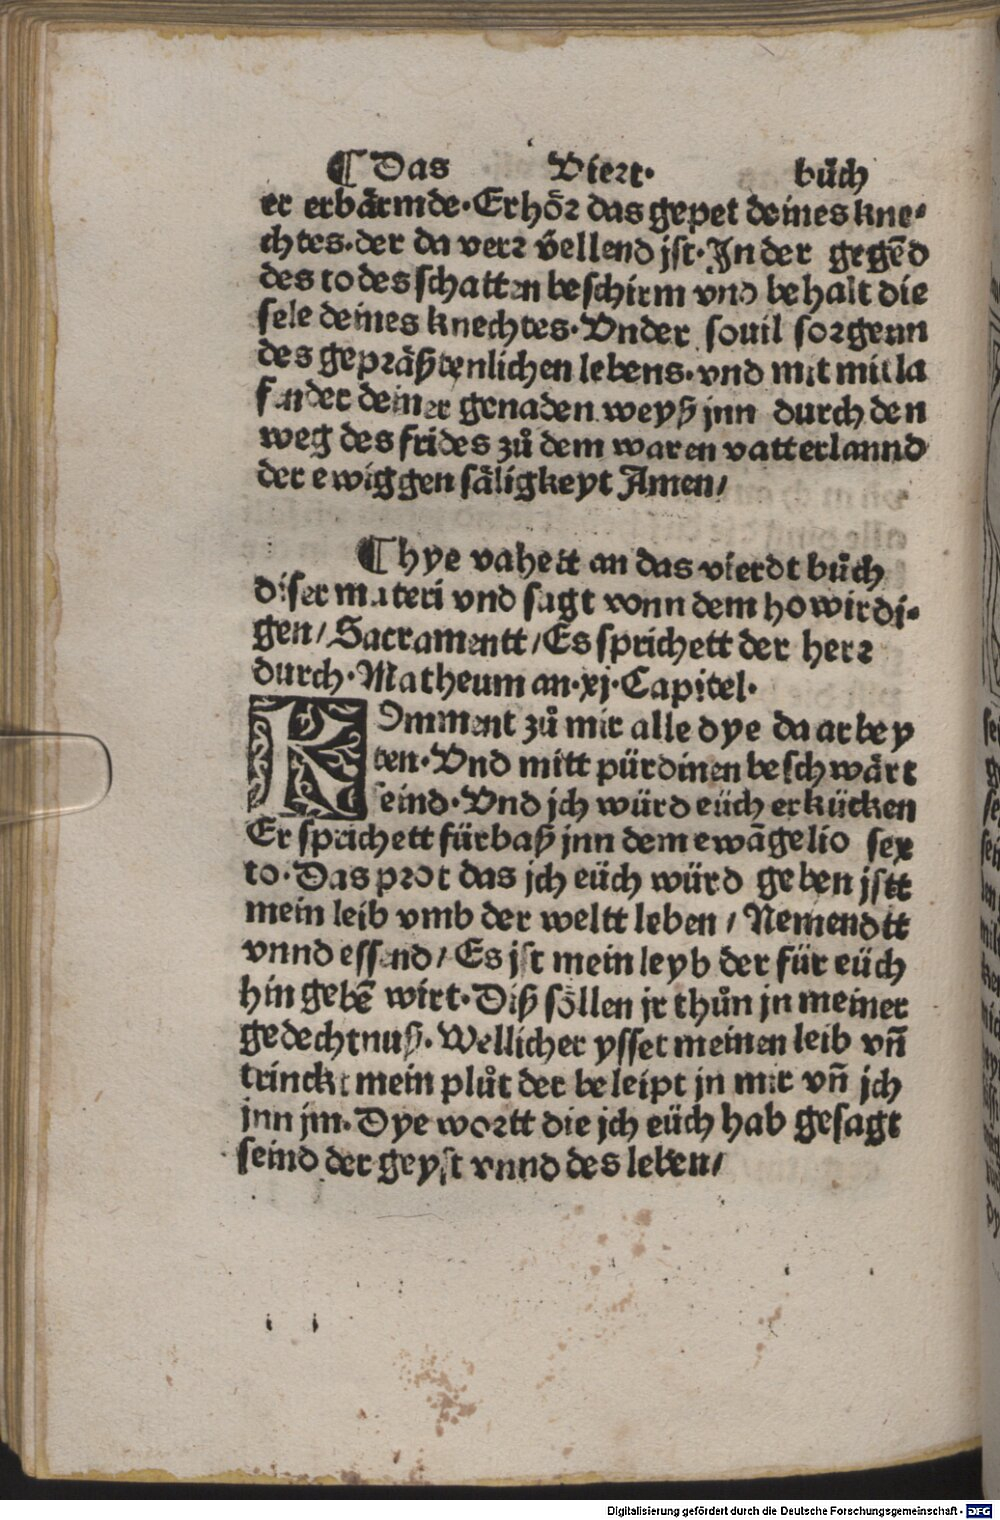 ¶ Das Viert· bůch
er erbärmde·Erhör das gepet deines kne⸗
chtes·der da verr v̈ellend jst·Jn der gegēd
des todes schatten beschirm vnd behalt die
sele deines knechtes·Vnder souil sorgenn
des gepräßtenlichen lebens·vnd mit mitla
fender deiner genaden weyß jnn durch den
weg des frides zů dem waren vatterlannd
der ewiggen säligkeyt Amen/
¶ hye vahett an das vierdt bůch
diser materi vnd sagt vonn dem howirdi⸗
gen/Sacramentt/Es sprichett der herr
durch·Matheum an·xj·Capitel·
KOmment zů mir alle dye da arbey
ten·Vnd mitt pürdinen beschwärt
seind·Vnd jch würd eüch erkücken
Er sprichett fürbaß jnn dem ewāgelio sex
to·Das prot das jch eüch würd geben jstt
mein leib vmb der weltt leben/Nemendtt
vnnd essend/Es jst mein leyb der für eüch
hin gebē wirt·Diß söllen jr thůn jn meiner
gedechtnuß·Wellicher ysset meinen leib vñ
trinckt mein plůt der beleipt jn mir vñ jch
jnn jm·Dye wortt die jch eüch hab gesagt
seind der geyst vnnd des leben/
Digitalisierung gefördert durch die Deutsche Forschungsgemeinschaft - DFG